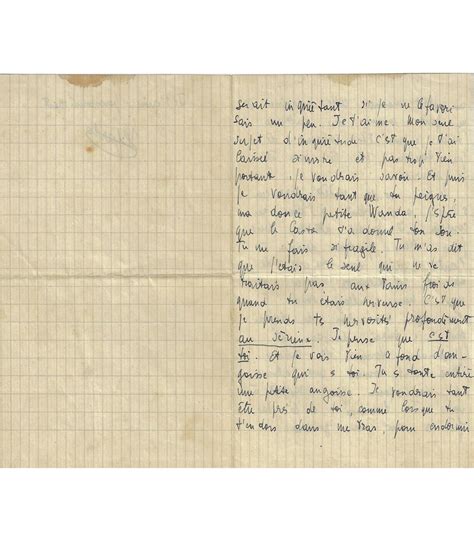 serait inquiétant si je ne le favori
sais un peu. Je t'aime. Mon seul
sujet d'inquiétude c'est que je t'ai
laissée et pas trop bien
portante. Je voudrais savoir. Et puis
je voudrais tant que tu peignes,
ma douce petite Wanda, j'espère
que le t'a donné ton
Tu me fais si fragile. Tu m'as dit
que j'étais le seul qui ne te
traitais pas aux bains froids
quand tu étais nerveuse. C'est que
je prends tes nervosités profondément
au sérieux. Je pense que c'est
toi. Et je vois bien a fond d'an-
goisse qui e toi. Tu es toute entière
une petite angoisse. Je voudrais tant
être près de toi, comme lorsque tu
t'endors dans mes bras, pour endormir